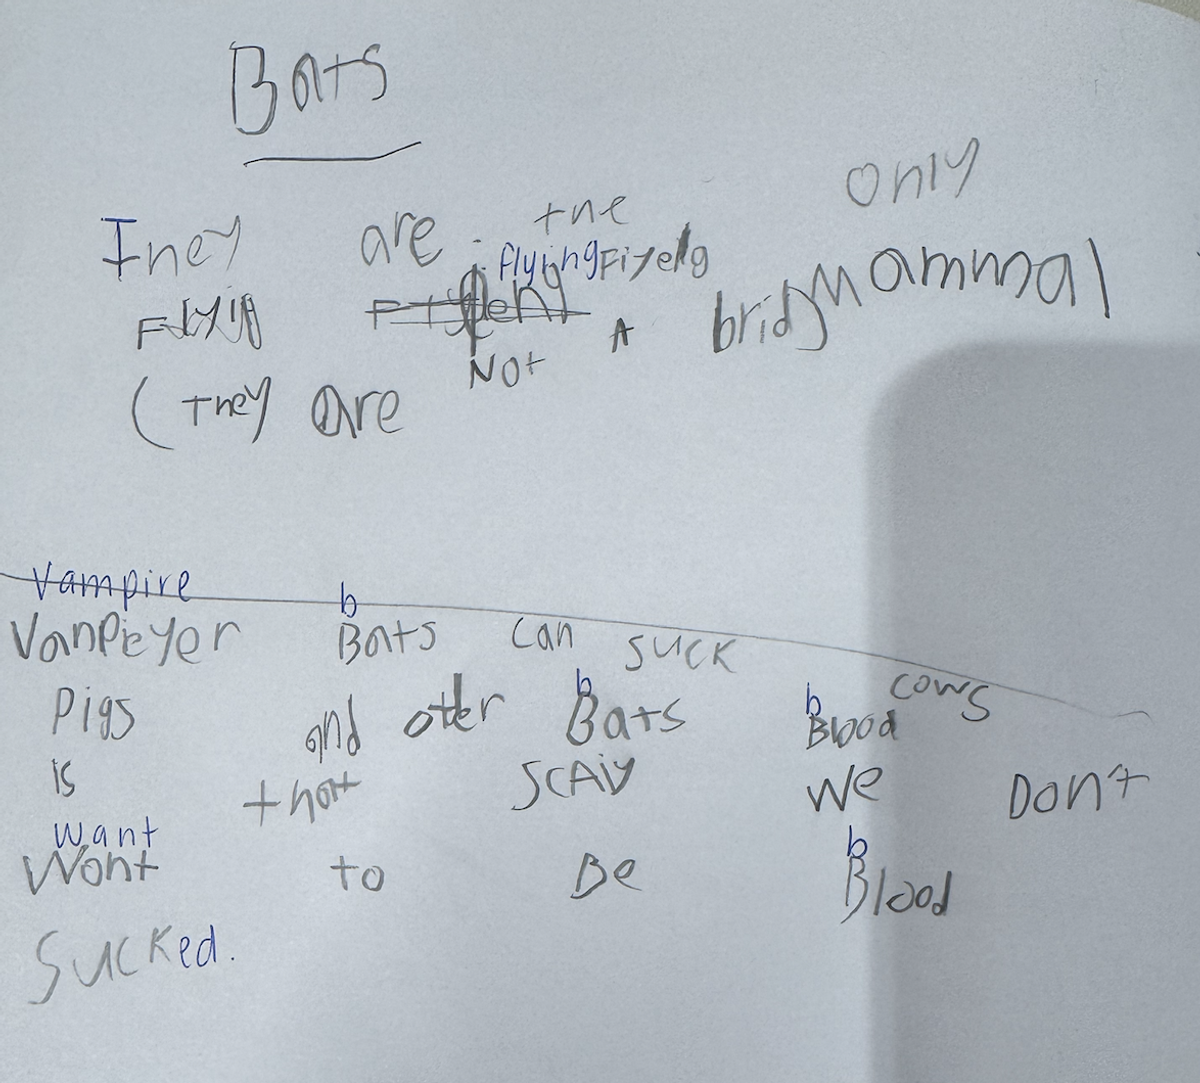 Bats
They are the only
Flyig flying Fiyelg Mammal
(They are Not A brid)
Vampire b
VanPeyer Bats can suck cows
b b
Pigs and otter Bats Blood
is that SCAiy we Don't
want b
Wont to Be Blood
Sucked.